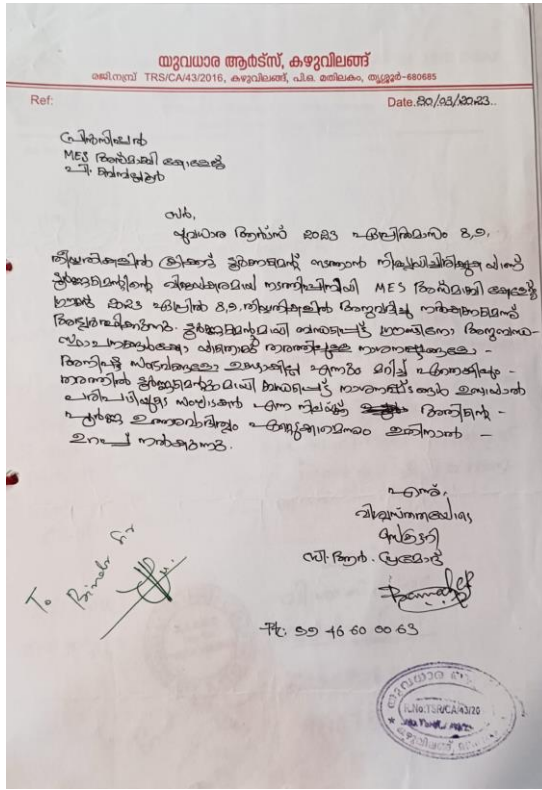 യുവധാര ആർട്സ്, കഴുവിലങ്ങ്
രജി.നമ്പ്ര് TRS/CA/43/2016, കഴുവിലങ്ങ്, പി.ഒ. മതിലകം, തൃശ്ശൂർ-680685
Ref:
Date.20/03/2023..
പ്രിൻസിപ്പൽ
MES അസ്മാബി കോളേജ്
പി. വെമ്പല്ലൂർ
സർ,
യുവധാര ആർട്സ് 2023 ഏപ്രിൽമാസം 8,9,
തീയ്യതികളിൽ ക്രിക്കറ്റ് ടൂർണമെന്റ് നടത്താൻ നിശ്ചയിച്ചിരിക്കുന്ന
ടൂർണ്ണമെന്റിന്റെ വിജയകരമായ നടത്തിപ്പിനായി MES അസ്മാബി കോളേജ്
ഗ്രൗണ്ട് 2023 ഏപ്രിൽ 8,9, തിയതികളിൽ അനുവദിച്ചു നൽകണമെന്ന്
അഭ്യർത്ഥിക്കുന്നു. ടൂർണ്ണമെന്റുമായി ബന്ധപ്പെട്ട് ഗ്രൗണ്ടിനോ അനുബന്ധ-
സ്ഥാപനങ്ങൾക്കോ യാതൊരു തരത്തിലുള്ള നാശനഷ്ടങ്ങളോ -
അനിഷ്ട സംഭവങ്ങളോ ഉണ്ടാകില്ല എന്നും മറിച്ച് ഏതെങ്കിലും -
തരത്തിൽ ടൂർണ്ണമെന്റുമായി ബന്ധപ്പെട്ട് നാശനഷ്ടങ്ങൾ ഉണ്ടായാൽ
പരിപാടിയുടെ സംഘാടകർ എന്ന നിലയ്ക്ക് അതിന്റെ -
പൂർണ്ണ ഉത്തരവാദിത്വം ഏറ്റെടുക്കാമെന്നും ഇതിനാൽ -
ഉറപ്പ് നൽകുന്നു.
എന്ന്,
വിശ്വസ്തതയോടെ
സെക്രട്ടറി
സി.ആർ. പ്രമോദ്
Ph: 99 46 60 00 63
To Bindu Sir
യുവധാര
R.No:TSR/CA/43/20
കഴുവിലങ്ങ്,